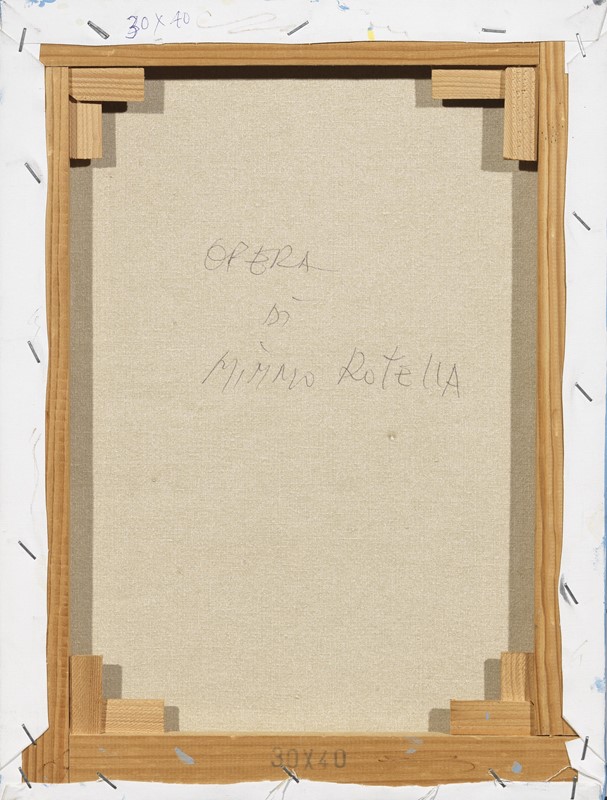 30 X 40
OPERA
Di
MIMMO ROTELLA
30X40